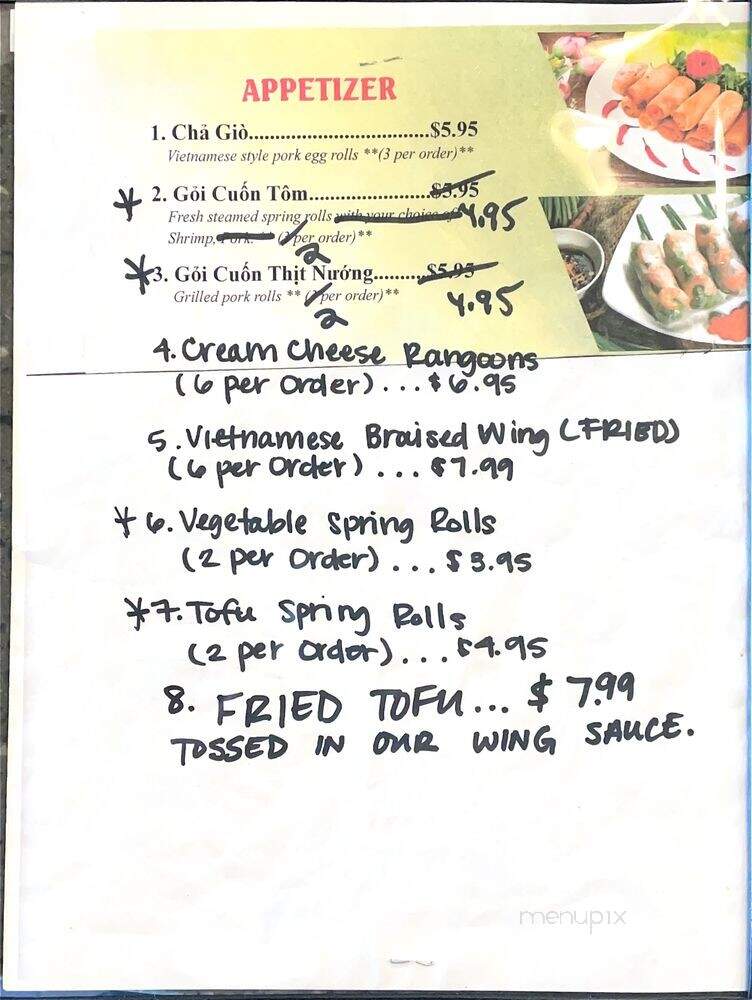 APPETIZER
1. Chả Giò..................................$5.95
Vietnamese style pork egg rolls **(3 per order)**
* 2. Gỏi Cuốn Tôm.......................$5.95 4.95
Fresh steamed spring rolls with your choice of
Shrimp, Pork. ** (2 per order)**
2
*3. Gỏi Cuốn Thịt Nướng..........$5.95
Grilled pork rolls ** ( per order)** 4.95
2
4. Cream Cheese Rangoons
(6 per Order)...$6.95
5. Vietnamese Braised Wing (FRIED)
(6 per Order)...$7.99
* 6. Vegetable Spring Rolls
(2 per Order)...$3.95
*7. Tofu Spring Rolls
(2 per Order)...$4.95
8. FRIED TOFU...$7.99
TOSSED IN OUR WING SAUCE.
menupix